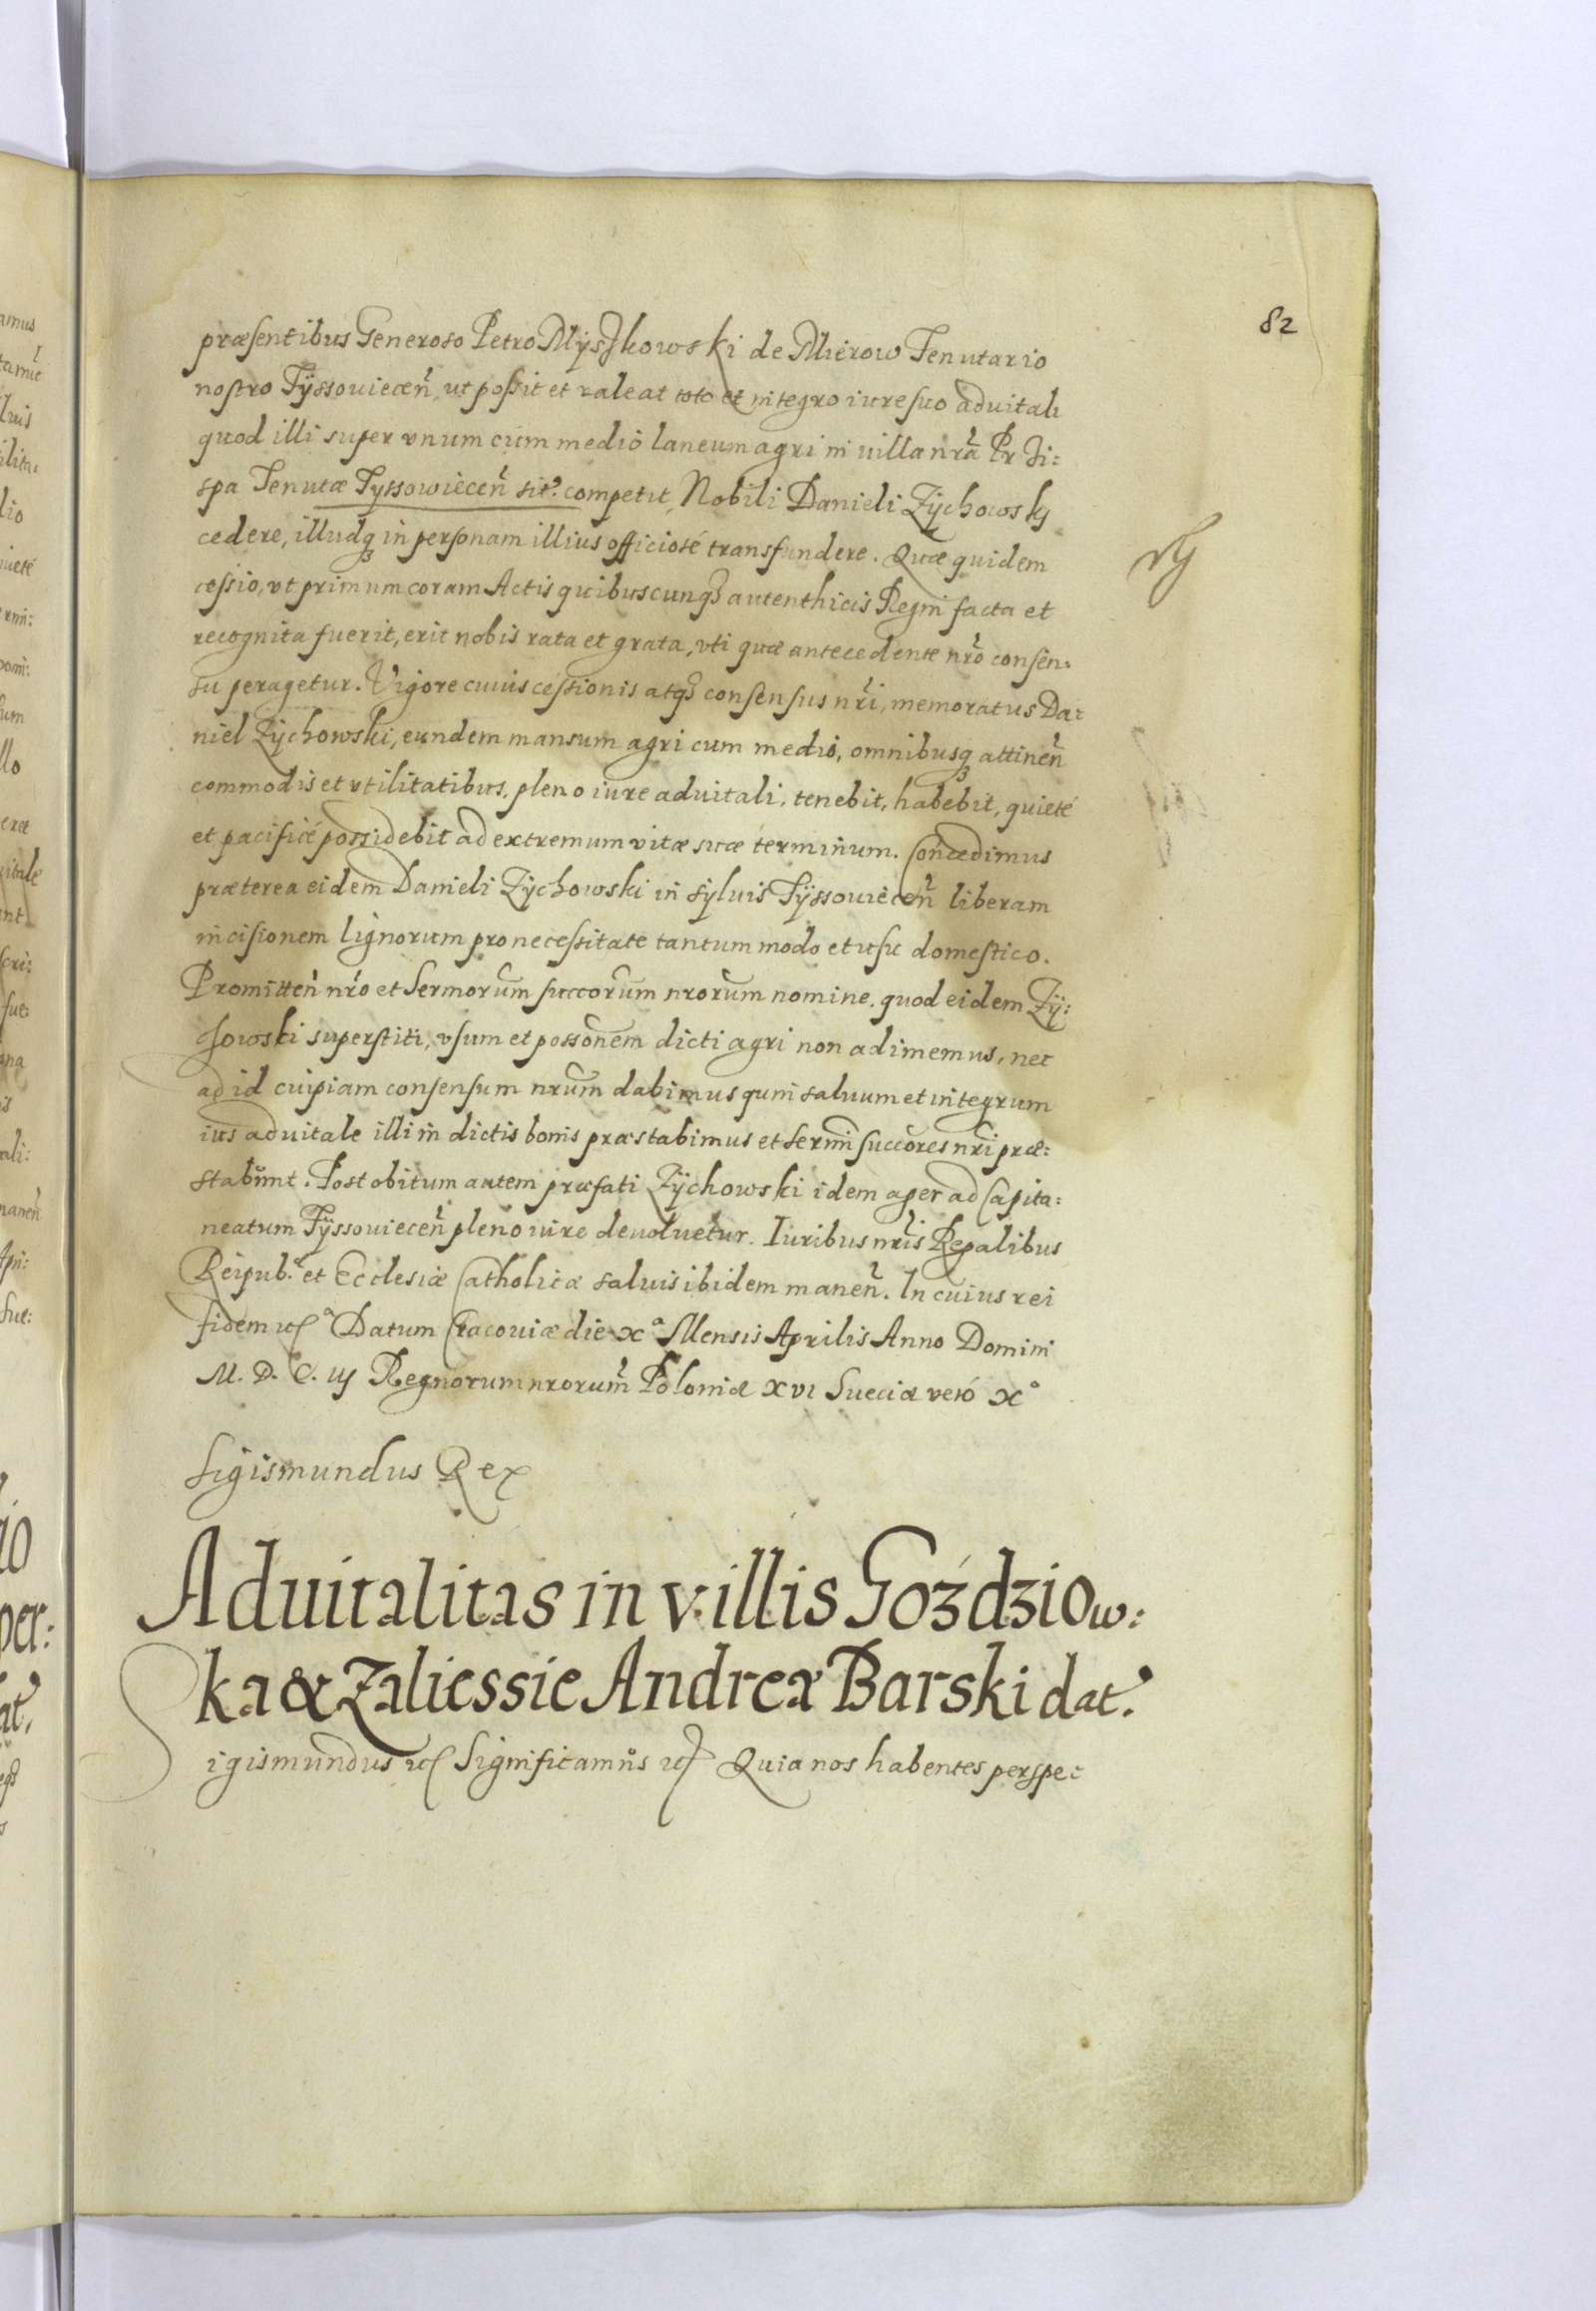 82
præsentibus Generoso Petro Mysskowski de Mierow Tenutario
nostro Tÿssouiecen̄, ut possit et valeat toto et integro iure suo aduitali
quod illi super vnum cum medio laneum agri in uilla nr̄a Przi:
spa Tenutæ Tyssowiecen̄ sit. competit, Nobili Danieli Zÿchowsky
cedere, illudq; in personam illius officiosé transfundere. Quæ quidem
cessio, vt primum coram Actis quibuscunq; autenthicis Regni facta et
recognita fuerit, erit nobis rata et grata, vti quæ antecedente nr̄o consen:
su peragetur. Vigore cuius cessionis atq; consensus nr̄i, memoratus Da:
niel Zÿchowski, eundem mansum agri cum medio, omnibusq; attinen̄
commodis et vtilitatibus, pleno iure aduitali, tenebit, habebit, quieté
et pacificé possidebit ad extremum vitæ suæ terminum. Concedimus
præterea eidem Danieli Zÿchowski in syluis Tÿssouiecen̄ liberam
incisionem lignorum pro necessitate tantum modo et usu domestico.
Promitten̄ nr̄o et Sermorum succorum nrorum nomine, quod eidem Zÿ:
chowski superstiti, vsum et possonem dicti agri non adimemus, nec
ad id cuipiam consensum nrum dabimus quin saluum et integrum
ius aduitale illi in dictis bonis præstabimus et sermi succores nri præ:
stabunt. Post obitum autem præfati Zÿchowski idem ager ad Capita:
neatum Tÿssouiecen̄ pleno iure deuoluetur. Iuribus nris Regalibus
Reipub. et Ecclesiæ Catholicæ saluis ibidem manen̄. In cuius rei
fidem etc Datum Cracouiæ die xª Mensis Aprilis Anno Domini
M. D. C. iij Regnorum nrorum Poloniæ xvi Sueciæ veró xº
Sigismundus Rex
Aduitalitas in villis Goździow:
ka & Zaliessie Andreæ Barski dat.
Sigismundus etc Significamus etc Quia nos habentes perspe: